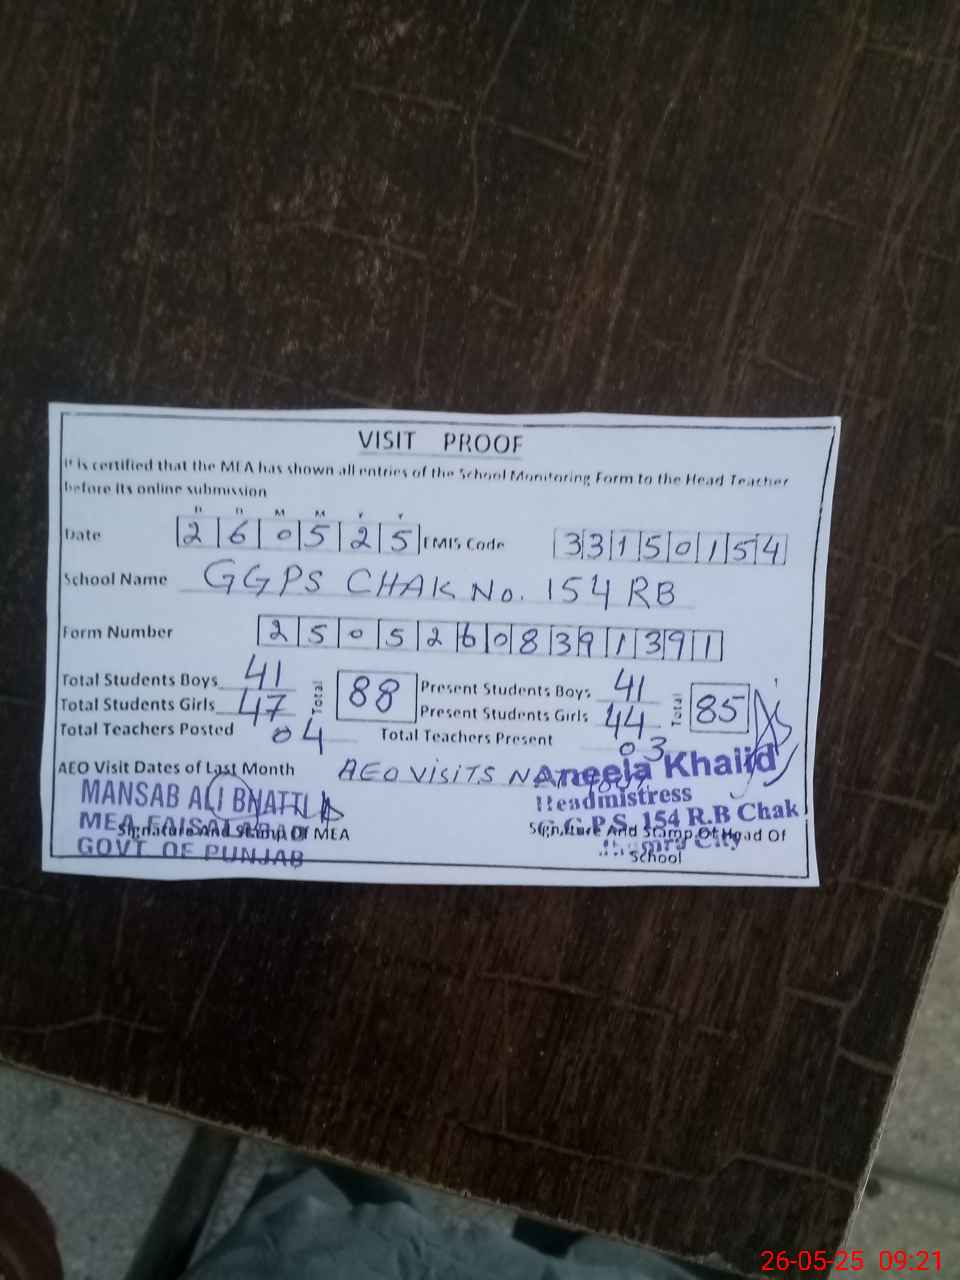 VISIT PROOF
It is certified that the MEA has shown all entries of the School Monitoring Form to the Head Teacher
before its online submission
D D M M Y Y
Date 2 6 0 5 2 5 EMIS Code 3 3 1 5 0 1 5 4
School Name GGPS CHAK No. 154 RB
Form Number 2 5 0 5 2 6 0 8 3 9 1 3 9 1
Total Students Boys 41 Total 88 Present Students Boys 41 Total 85
Total Students Girls 47 Present Students Girls 44
Total Teachers Posted 04 Total Teachers Present 03
AEO Visit Dates of Last Month AEO VISITS
Aneela Khalid
MANSAB ALI BHATTI
Headmistress
MEA FAISALABAD
G.G.P.S. 154 R.B Chak
Signature And Stamp Of MEA
Signature And Stamp Of Head Of
School
GOVT OF PUNJAB
City
26-05-25 09:21